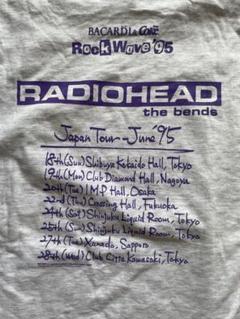 BACARDI & Coke
RockWave '95
RADIOHEAD
the bends
Japan Tour - June '95
18th (Sun) Shibuya Kokaido Hall, Tokyo
19th (Mon) Club Diamond Hall, Nagoya
20th (Tue) I.M.P. Hall, Osaka
22nd (Thu) Crossing Hall, Fukuoka
24th (Sat) Shinjuku Liquid Room, Tokyo
25th (Sun) Shinjuku Liquid Room, Tokyo
27th (Tue) Xanadu, Sapporo
28th (Wed) Club Citta Kawasaki, Tokyo